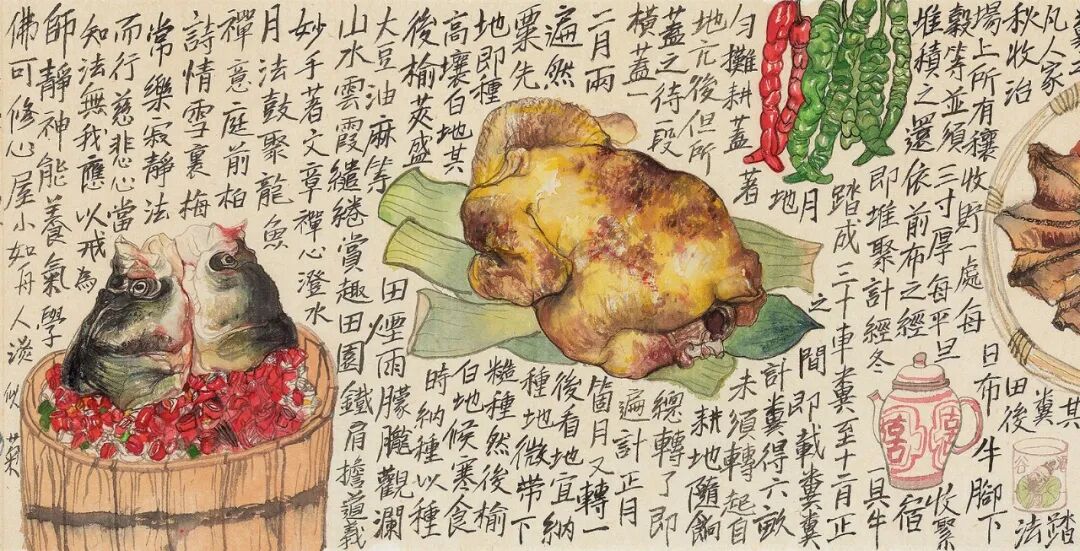 其糞踏法
凡人家秋收治田後
場上所有穰穀等並須收貯一處每日布牛腳下
三寸厚每平旦收聚堆積之還
依前布之經宿
即堆聚計經冬一具牛
踏成三十車糞至十二月正
月之間即載糞糞
地計糞得六畝
勻攤耕蓋著未須轉起自
地亢後但所耕地隨餉
蓋之待一段總轉了即
橫蓋一遍計正月
二月兩箇月又轉一
遍然後看地宜納
粟先種地微帶下
地即種糙種然後榆
高壤白地其白地候寒食
後榆莢盛時納種以種
大豆油麻等田煙雨朦朧觀瀾
山水雲霞繾綣賞趣田園鐵肩擔道義
妙手著文章禪心澄水
月法鼓聚龍魚
禪意庭前柏
詩情雪裏梅
常樂寂靜法
而行慈悲心當
知法無我應以戒為
師靜神能養氣學
佛可修心屋小如舟人淡似
菊